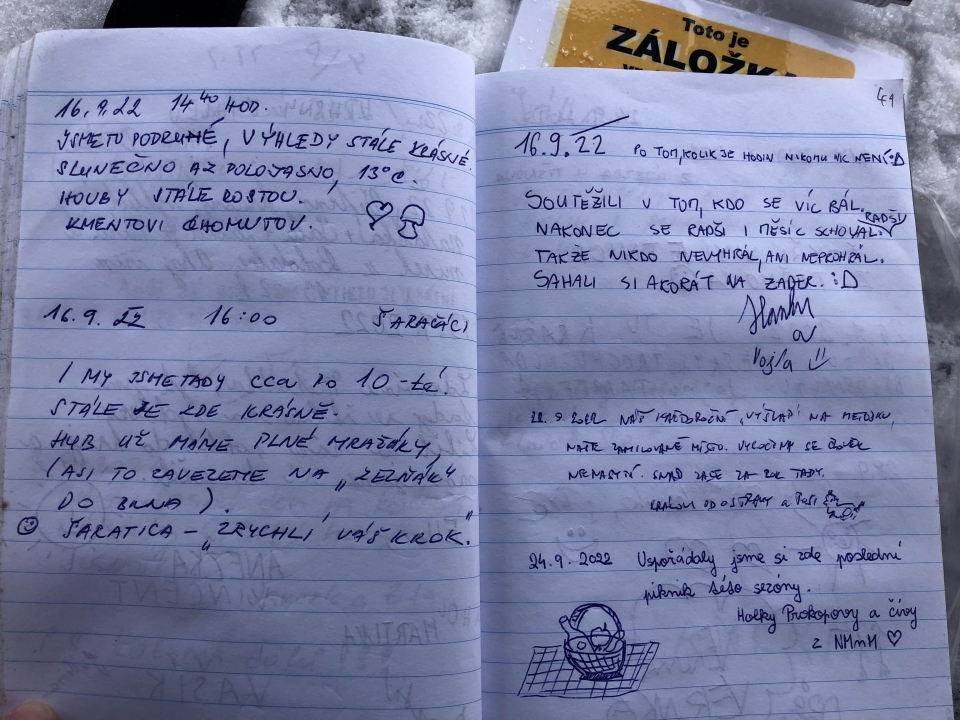 Toto je
ZÁLOŽKA
16.9.22 14⁴⁰ HOD.
JSME TU PODRUHÉ, VÝHLEDY STÁLE KRÁSNÉ.
SLUNEČNO AŽ POLOJASNO, 13°C.
HOUBY STÁLE ROSTOU.
KMENTOVI CHOMUTOV.
16.9.22 16:00 ŠARAŤÁCI
I MY JSME TADY CCA PO 10-té.
STÁLE JE ZDE KRÁSNĚ.
HUB UŽ MÁME PLNÉ MRAŽÁKY,
(ASI TO ZAVEZEME NA „ZELŇÁK"
DO BRNA).
☺ ŠARATICA – „ZRYCHLÍ VÁŠ KROK."
49
16.9.22 PO TOM, KOLIK JE HODIN NIKOMU NIC NENÍ :D
SOUTĚŽILI V TOM, KDO SE VÍC BÁL.
NAKONEC SE RADŠI I MĚSÍC SCHOVAL. RADŠI
TAKŽE NIKDO NEVYHRÁL, ANI NEPROHRÁL.
SAHALI SI AKORÁT NA ZADEK. :D
a
Vojta
2022 NÁŠ KAŽDOROČNÍ „VÝŠLAP" NA
NAŠE ZAMILOVANÉ MÍSTO. SE ČLOVĚK
SNAD ZASE ZA ROK TADY.
OD OSTRAVY a
24.9.2022 Uspořádaly jsme si zde poslední
piknik této sezóny.
Holky Prokopovy a
z NMnM ♡